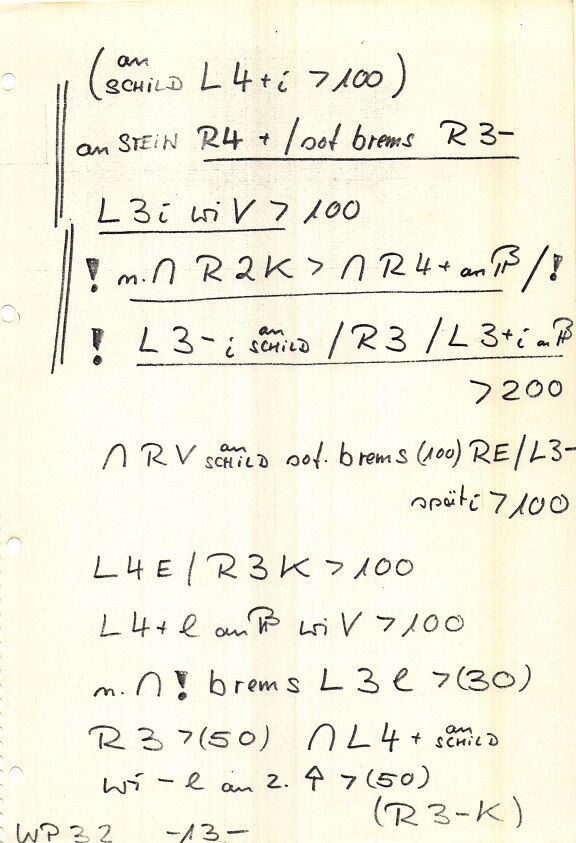 (an SCHILD L4+i >100)
an STEIN R4+ / sof brems R3-
L3i wi V > 100
! n. ∩ R2K > ∩ R4+ an /!
! L3-i an SCHILD / R3 / L3+i an
>200
∩ RV an SCHILD sof. brems (100) RE / L3-
späti >100
L4E / R3K >100
L4+ l an wi V >100
n. ∩ ! brems L3l >(30)
R3 >(50) ∩ L4+ an SCHILD
wi - l an 2. ⇑ >(50)
(R3-K)
WP32 -13-